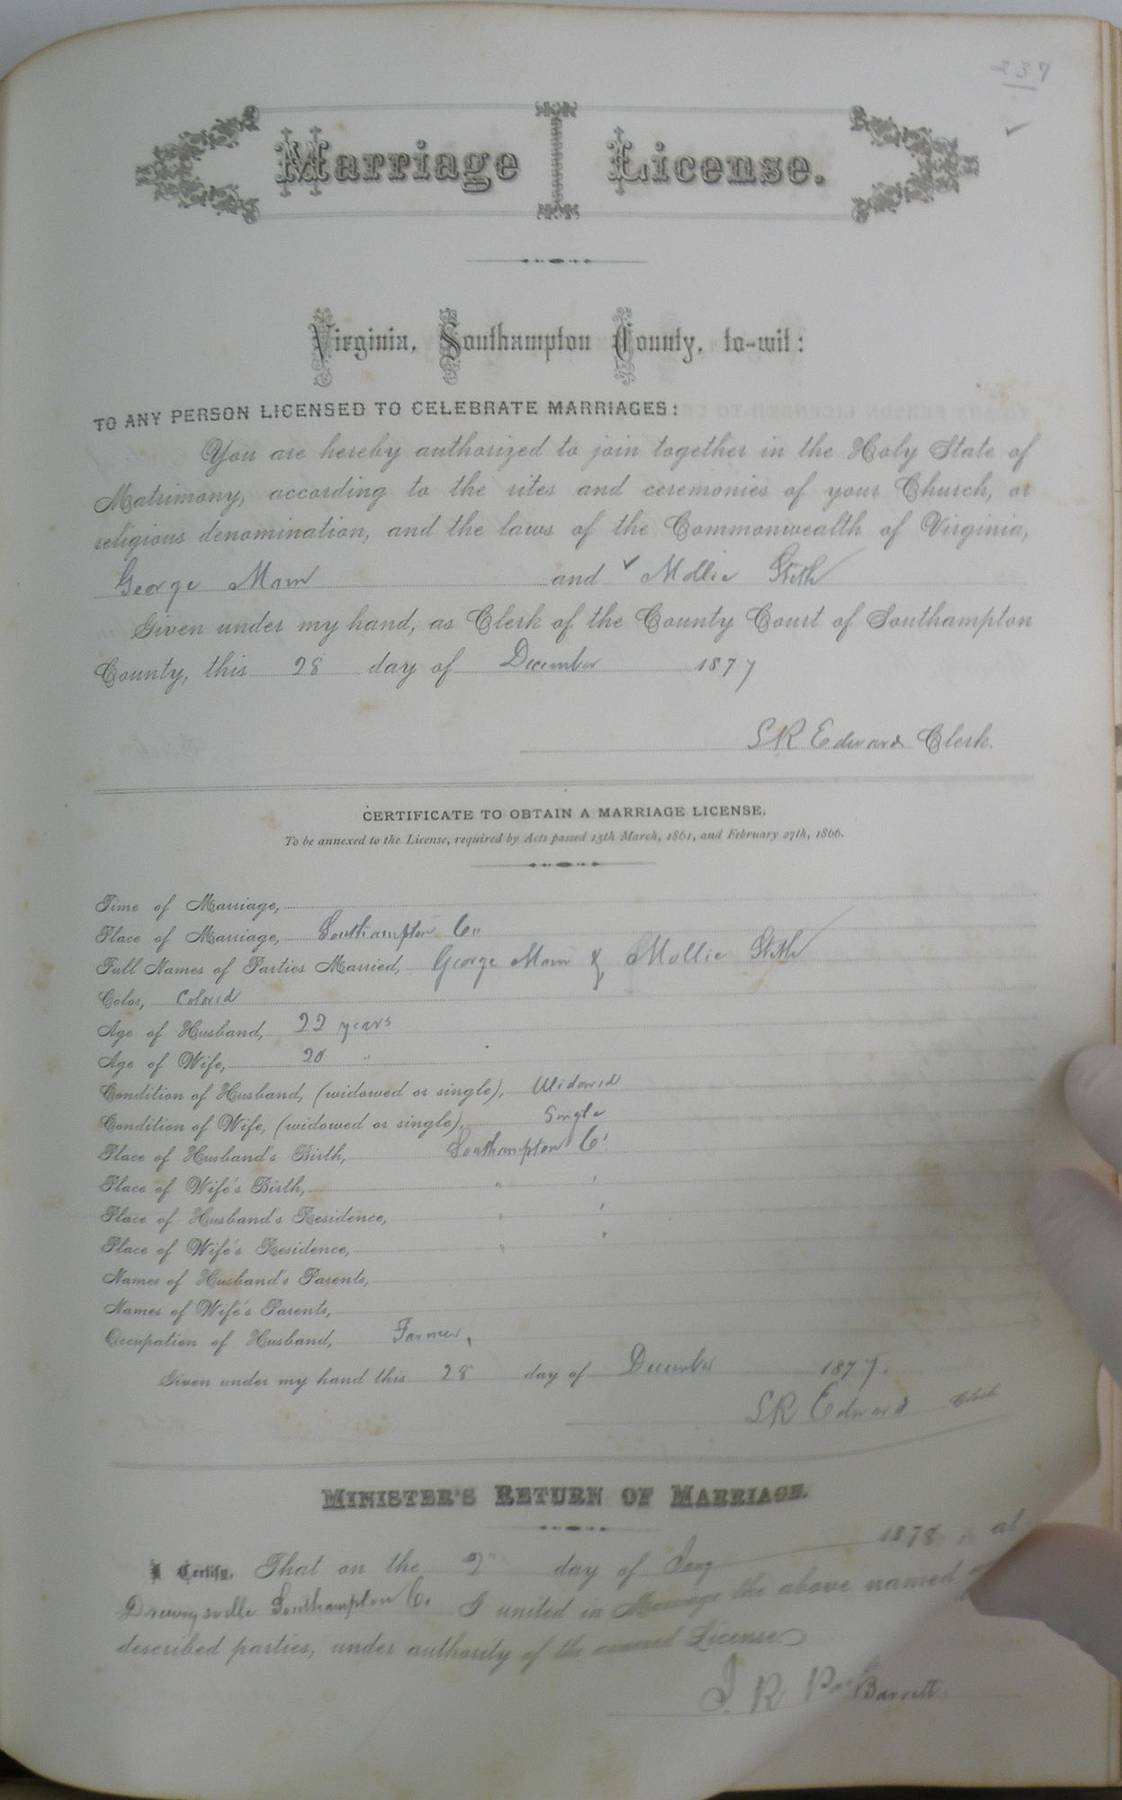 237
Marriage License.
Virginia, Southampton County, to-wit:
TO ANY PERSON LICENSED TO CELEBRATE MARRIAGES:
You are hereby authorized to join together in the Holy State of
Matrimony, according to the rites and ceremonies of your Church, or
religious denomination, and the laws of the Commonwealth of Virginia,
George and Mollie Stith
Given under my hand, as Clerk of the County Court of Southampton
County, this 28 day of December 1877
S R Edwards Clerk.
CERTIFICATE TO OBTAIN A MARRIAGE LICENSE.
To be annexed to the License, required by Acts passed 15th March, 1861, and February 27th, 1866.
Time of Marriage,
Place of Marriage, Southampton Co
Full Names of Parties Married, George & Mollie Stith
Color, Colored
Age of Husband, 22 years
Age of Wife, 20 "
Condition of Husband, (widowed or single), Widowed
Condition of Wife, (widowed or single), Single
Place of Husband's Birth, Southampton Co
Place of Wife's Birth, " "
Place of Husband's Residence, " "
Place of Wife's Residence, " "
Names of Husband's Parents,
Names of Wife's Parents,
Occupation of Husband, Farmer,
Given under my hand this 28 day of December 1877.
S R Edwards Clerk
MINISTER'S RETURN OF MARRIAGE.
I Certify, That on the 2 day of Jany 1878, at
Drewrysville Southampton Co. I united in Marriage the above named
described parties, under authority of the annexed License.
J. R. Barrett